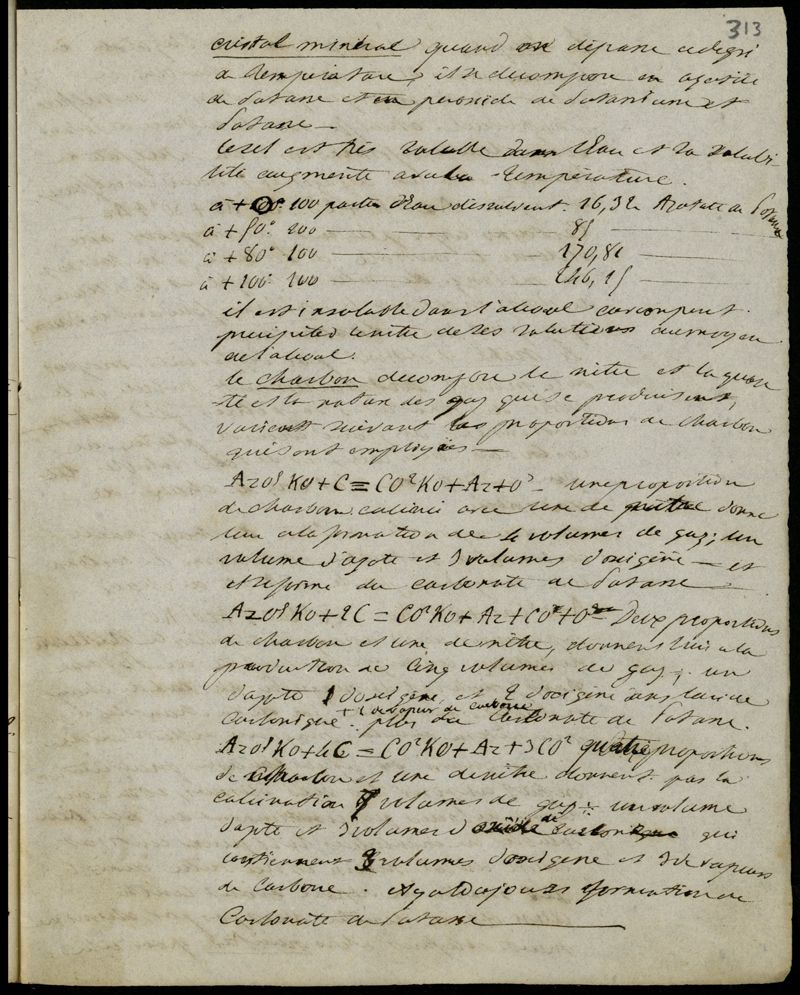 313
cristal minéral quand on dépasse ce degré
de température, il se decompose en azotite
de Potasse et en peroxide de Potassium et
Potasse —
Ce sel est très soluble dans l'Eau et sa solubi-
lité augmente avec la température.
à + 0° 100 parties d'Eau dissolvent. 16,32 Azotate de Potasse
à + 50° 100 — — 85 —
à + 80° 100 — — 170,80 —
à + 100° 100 — — 246,15 —
il est insoluble dans l'alcool car on peut
precipiter le nitre de ses solutions au moyen
de l'alcool.
le charbon decompose le nitre et la quan-
tité et la nature des gaz qui se produisent,
varient suivant les proportions de charbon
qui sont employées —
AzO⁵KO + C = CO²KO + Az + O³ — une proportion
de charbon calciné avec une de nitre donne
lieu à la formation de 4 volumes de gaz; un
volume d'azote et 3 volumes d'oxigène — et
il se forme du carbonate de Potasse —
AzO⁵KO + 2C = CO²KO + Az + CO² + O — Deux proportions
de charbon et une de nitre, donnent lieu à la
production de cinq volumes de gaz; un
d'azote 1 d'oxigène, et 2 d'oxigène dans l'acide
+ 1 de vapeur de carbone
Carbonique. plus du Carbonate de Potasse.
AzO⁵KO + 4C = CO²KO + Az + 3CO² quatre proportions
de Charbon et une de nitre donnent par la
calcination 7 volumes de gaz: un volume
d'azote et 3 volumes d'oxide de carbone qui
contiennent volumes d'oxigene et 3 de vapeurs
de Carbone. il y a toujours formation de
Carbonate de Potasse —